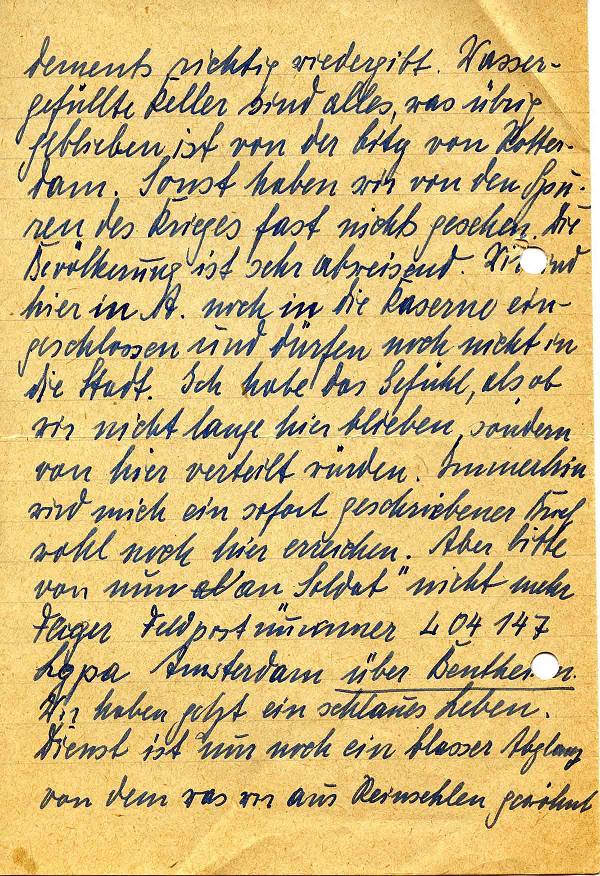 dements richtig wiedergibt. Wasser-
gefüllte Keller sind alles, was übrig
geblieben ist von der City von Rotter-
dam. Sonst haben wir von den Spu-
ren des Krieges fast nichts gesehen. Die
Bevölkerung ist sehr abweisend. Wir sind
hier in A. noch in die Kaserne ein-
geschlossen und dürfen noch nicht in
die Stadt. Ich habe das Gefühl, als ob
wir nicht lange hier blieben, sondern
von hier verteilt würden. Immerhin
wird mich ein sofort geschriebener Brief
wohl noch hier erreichen. Aber bitte
von nun ab an Soldat" nicht mehr
Flieger Feldpostnummer L 04 147
Lgpa Amsterdam über Bentheim.
Wir haben jetzt ein schlaues Leben.
Dienst ist nur noch ein blasser Abglanz
von dem was wir aus Reinsehlen gewöhnt